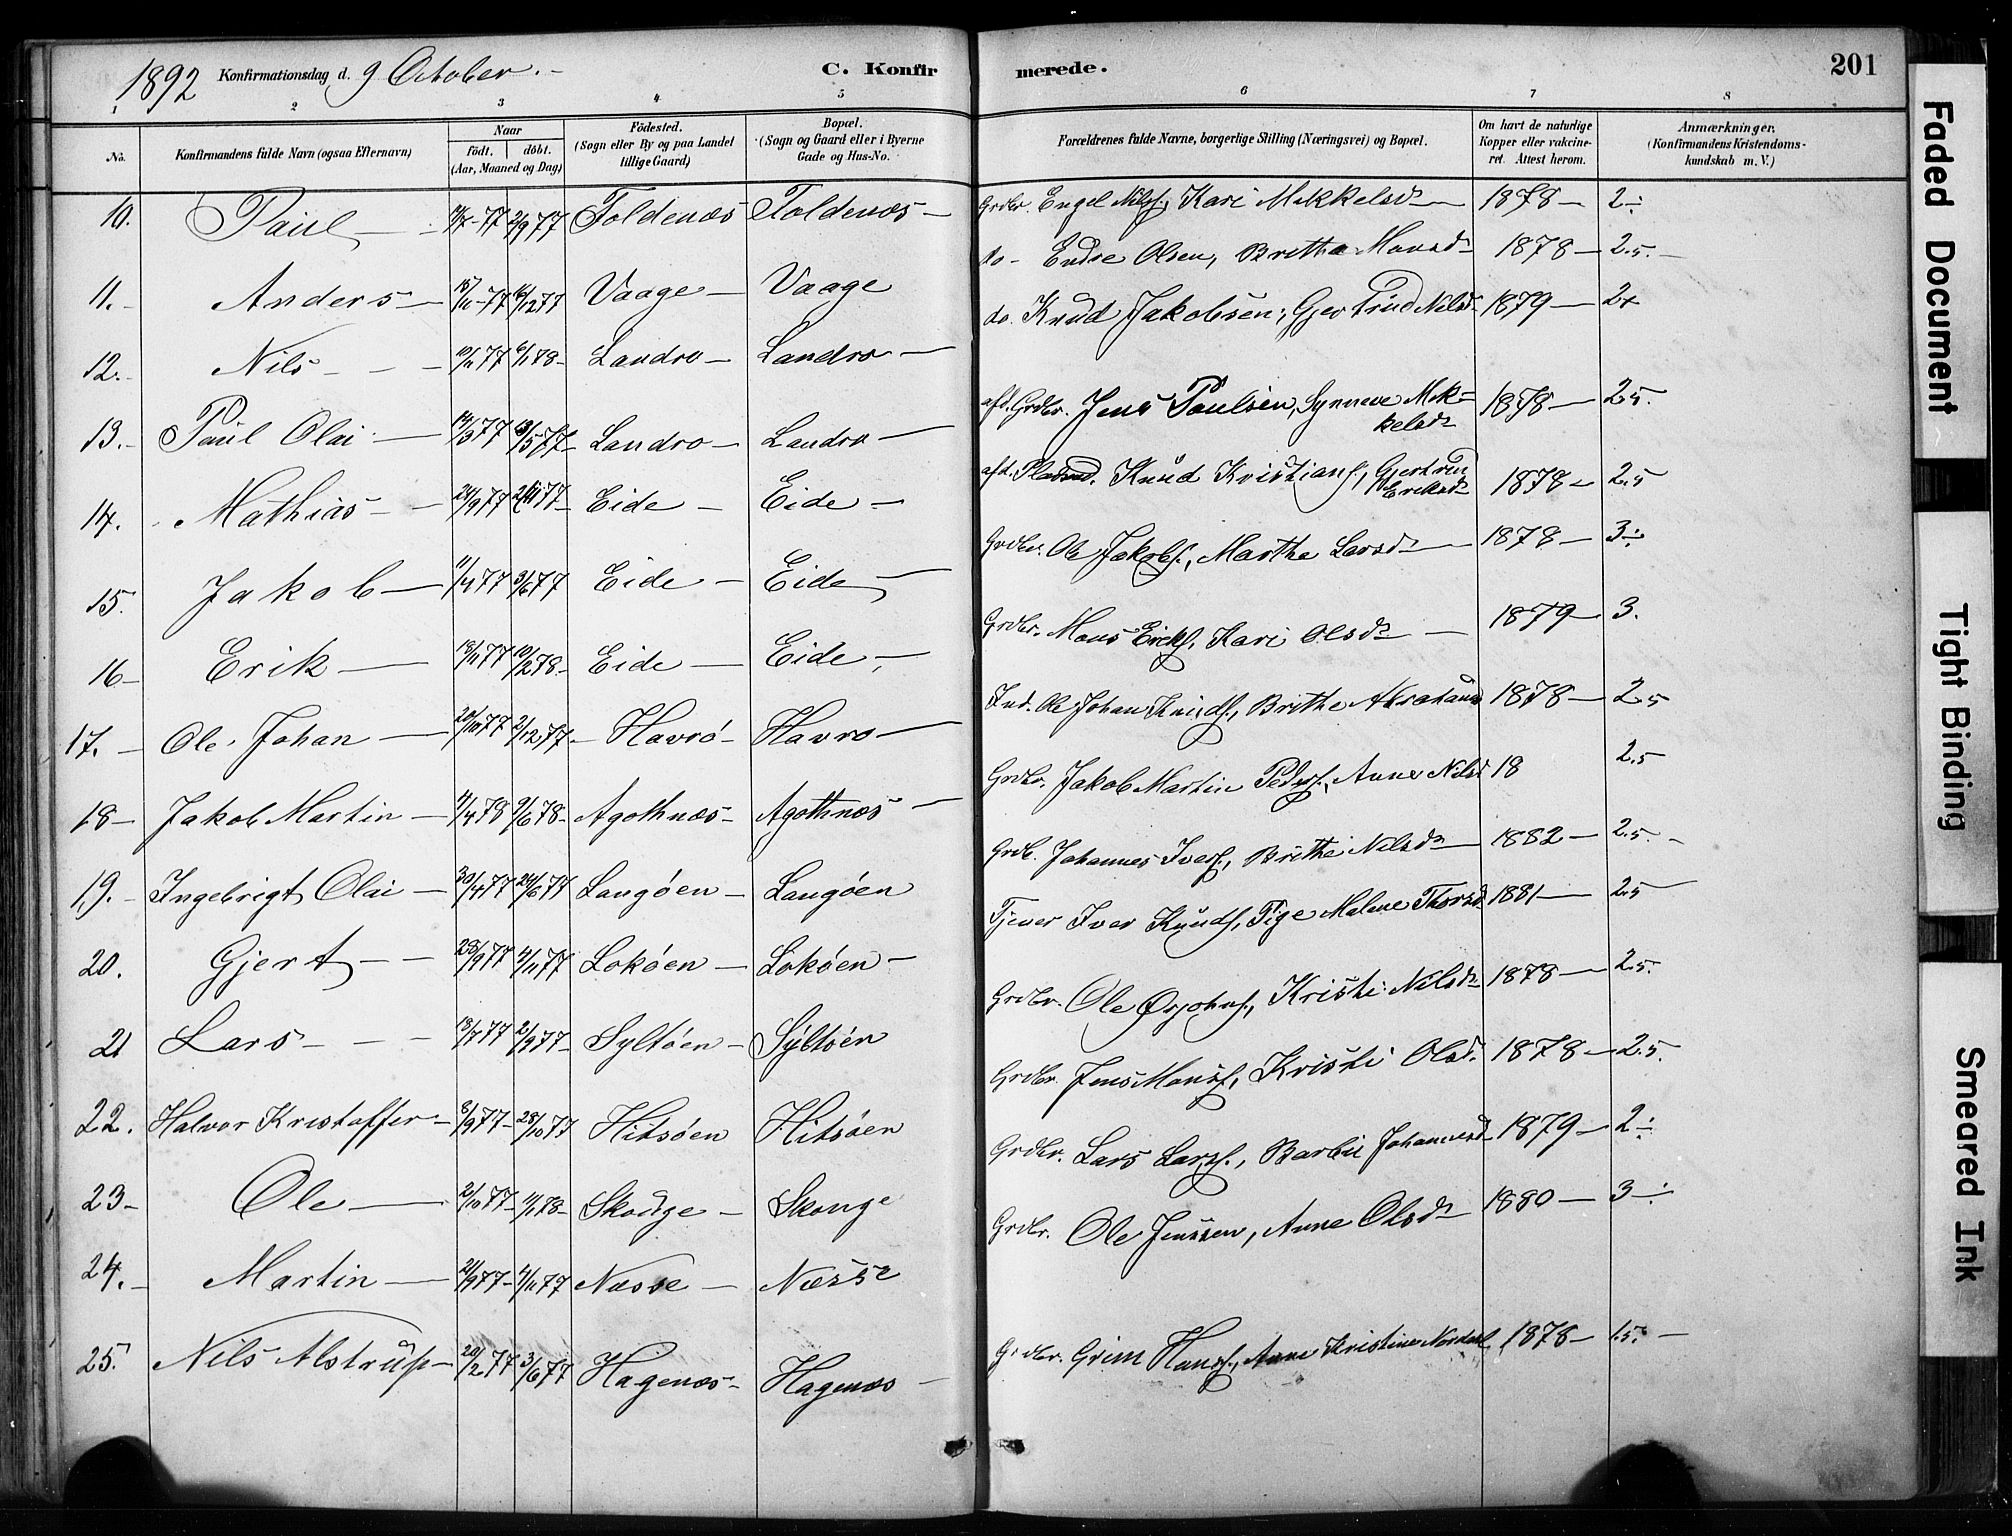 1892 Konfirmationsdag d. 9 October.
C. Konfirmerede.
201
1 2 3 4 5 6 7 8
No.
Konfirmandens fulde Navn (ogsaa Efternavn)
Naar
födt. döbt.
(Aar, Maaned og Dag)
Födested.
(Sogn eller By og paa Landet
tillige Gaard)
Bopæl.
(Sogn og Gaard eller i Byerne
Gade og Hus-No.
Forældrenes fulde Navne, borgerlige Stilling (Næringsvei) og Bopæl.
Om havt de naturlige
Kopper eller vakcine-
ret. Attest herom.
Anmærkninger.
(Konfirmandens Kristendoms-
kundskab m. V.)
10. Paul 2/9 77 Toldenæs Toldenæs Grdbr. Engel Nilss., Kari Mikkelsdr 1878 2÷
11. Anders 15/11-77 16/12 77 Vaage Vaage do Endre Olsen, Britha Monsdr 1878 2.5
12. Nils 10/11 77 6/1 78 Landro Landro do. Knud Jakobsen, Gjertrud Nilsdr 1879 2+
13. Paul Olai 14/3 77 13/5 77 Landro Landro afd. Grdbr. Jens Paulsen, Synneve Mik=
kelsdr 1878 2.5
14. Mathias 24/9 77 77 Eide Eide afd. Pladsmd. Knud Kristians., Gjertrud
Eriksdr 1878 2.5
15. Jakob 11/4 77 3/6 77 Eide Eide Grdbr. Ole Jakobs., Marthe Larsdr 1878 3÷
16 Erik 18/11 77 10/2 78 Eide Eide Grdbr. Mons Ericks., Kari Olsdr 1879 3.
17. Ole Johan 20/10 77 2/12 77 Havrö Havro Ind. Ole Johan Knuds., Brithe Abrahams 1878 2.5
18 Jakob Martin 4/4 78 9/6 78 Agothnæs Agothnæs Grdbr. Jakob Martin Peders., Anne Nilsd 18 2.5
19. Ingebrigt Olai 30/4 77 24/6 77 Langöen Langöen Grdb. Johannes Ivers., Brithe Nilsdr 1882 2.5
20. Gjert 28/9 77 4/11 77 Loköen Loköen Tjener Iver Knuds., Pige Malene Thorsd 1881 2.5
21 Lars 18/7 77 2/9 77 Syltöen Syltöen Grdbr. Ole Kristi Nilsdr 1878 2.5.
22. Halvor Kristoffer 8/9 77 28/10 77 Hitsöen Hitsöen Grdbr. Jens Monss., Kristi Olsd. 1878 2.5.
23 Ole 2/10 77 1/1 78 Skouge Skouge Grdbr. Lars Larss., Barbu Johannesd 1879 2÷
24. Martin 21/9 77 4/11 77 Næsse Næsse Grdbr. Ole Jenssen, Anne Olsdr 1880 3÷
25. Nils Alstrup 20/2 77 3/6 77 Hagenæs Hagenæs Grdbr. Grim Hanss., Anne Kristine Nordal 1878 1.5.
Faded Document
Tight Binding
Smeared Ink